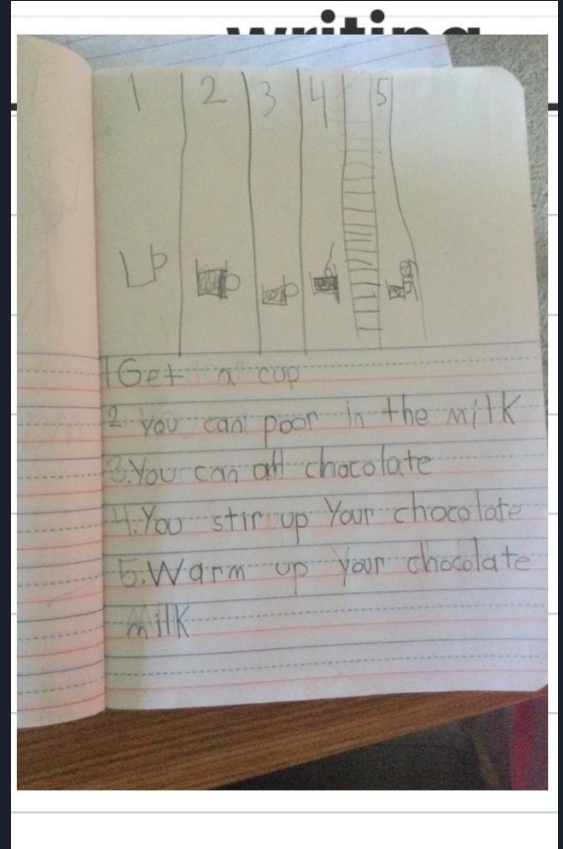 writing
1 2 3 4 5
1 Get a cup
2 you can poor in the milk
3. You can att chocolate
4. You stir up Your chocolate
5. Warm up your chocolate
milk